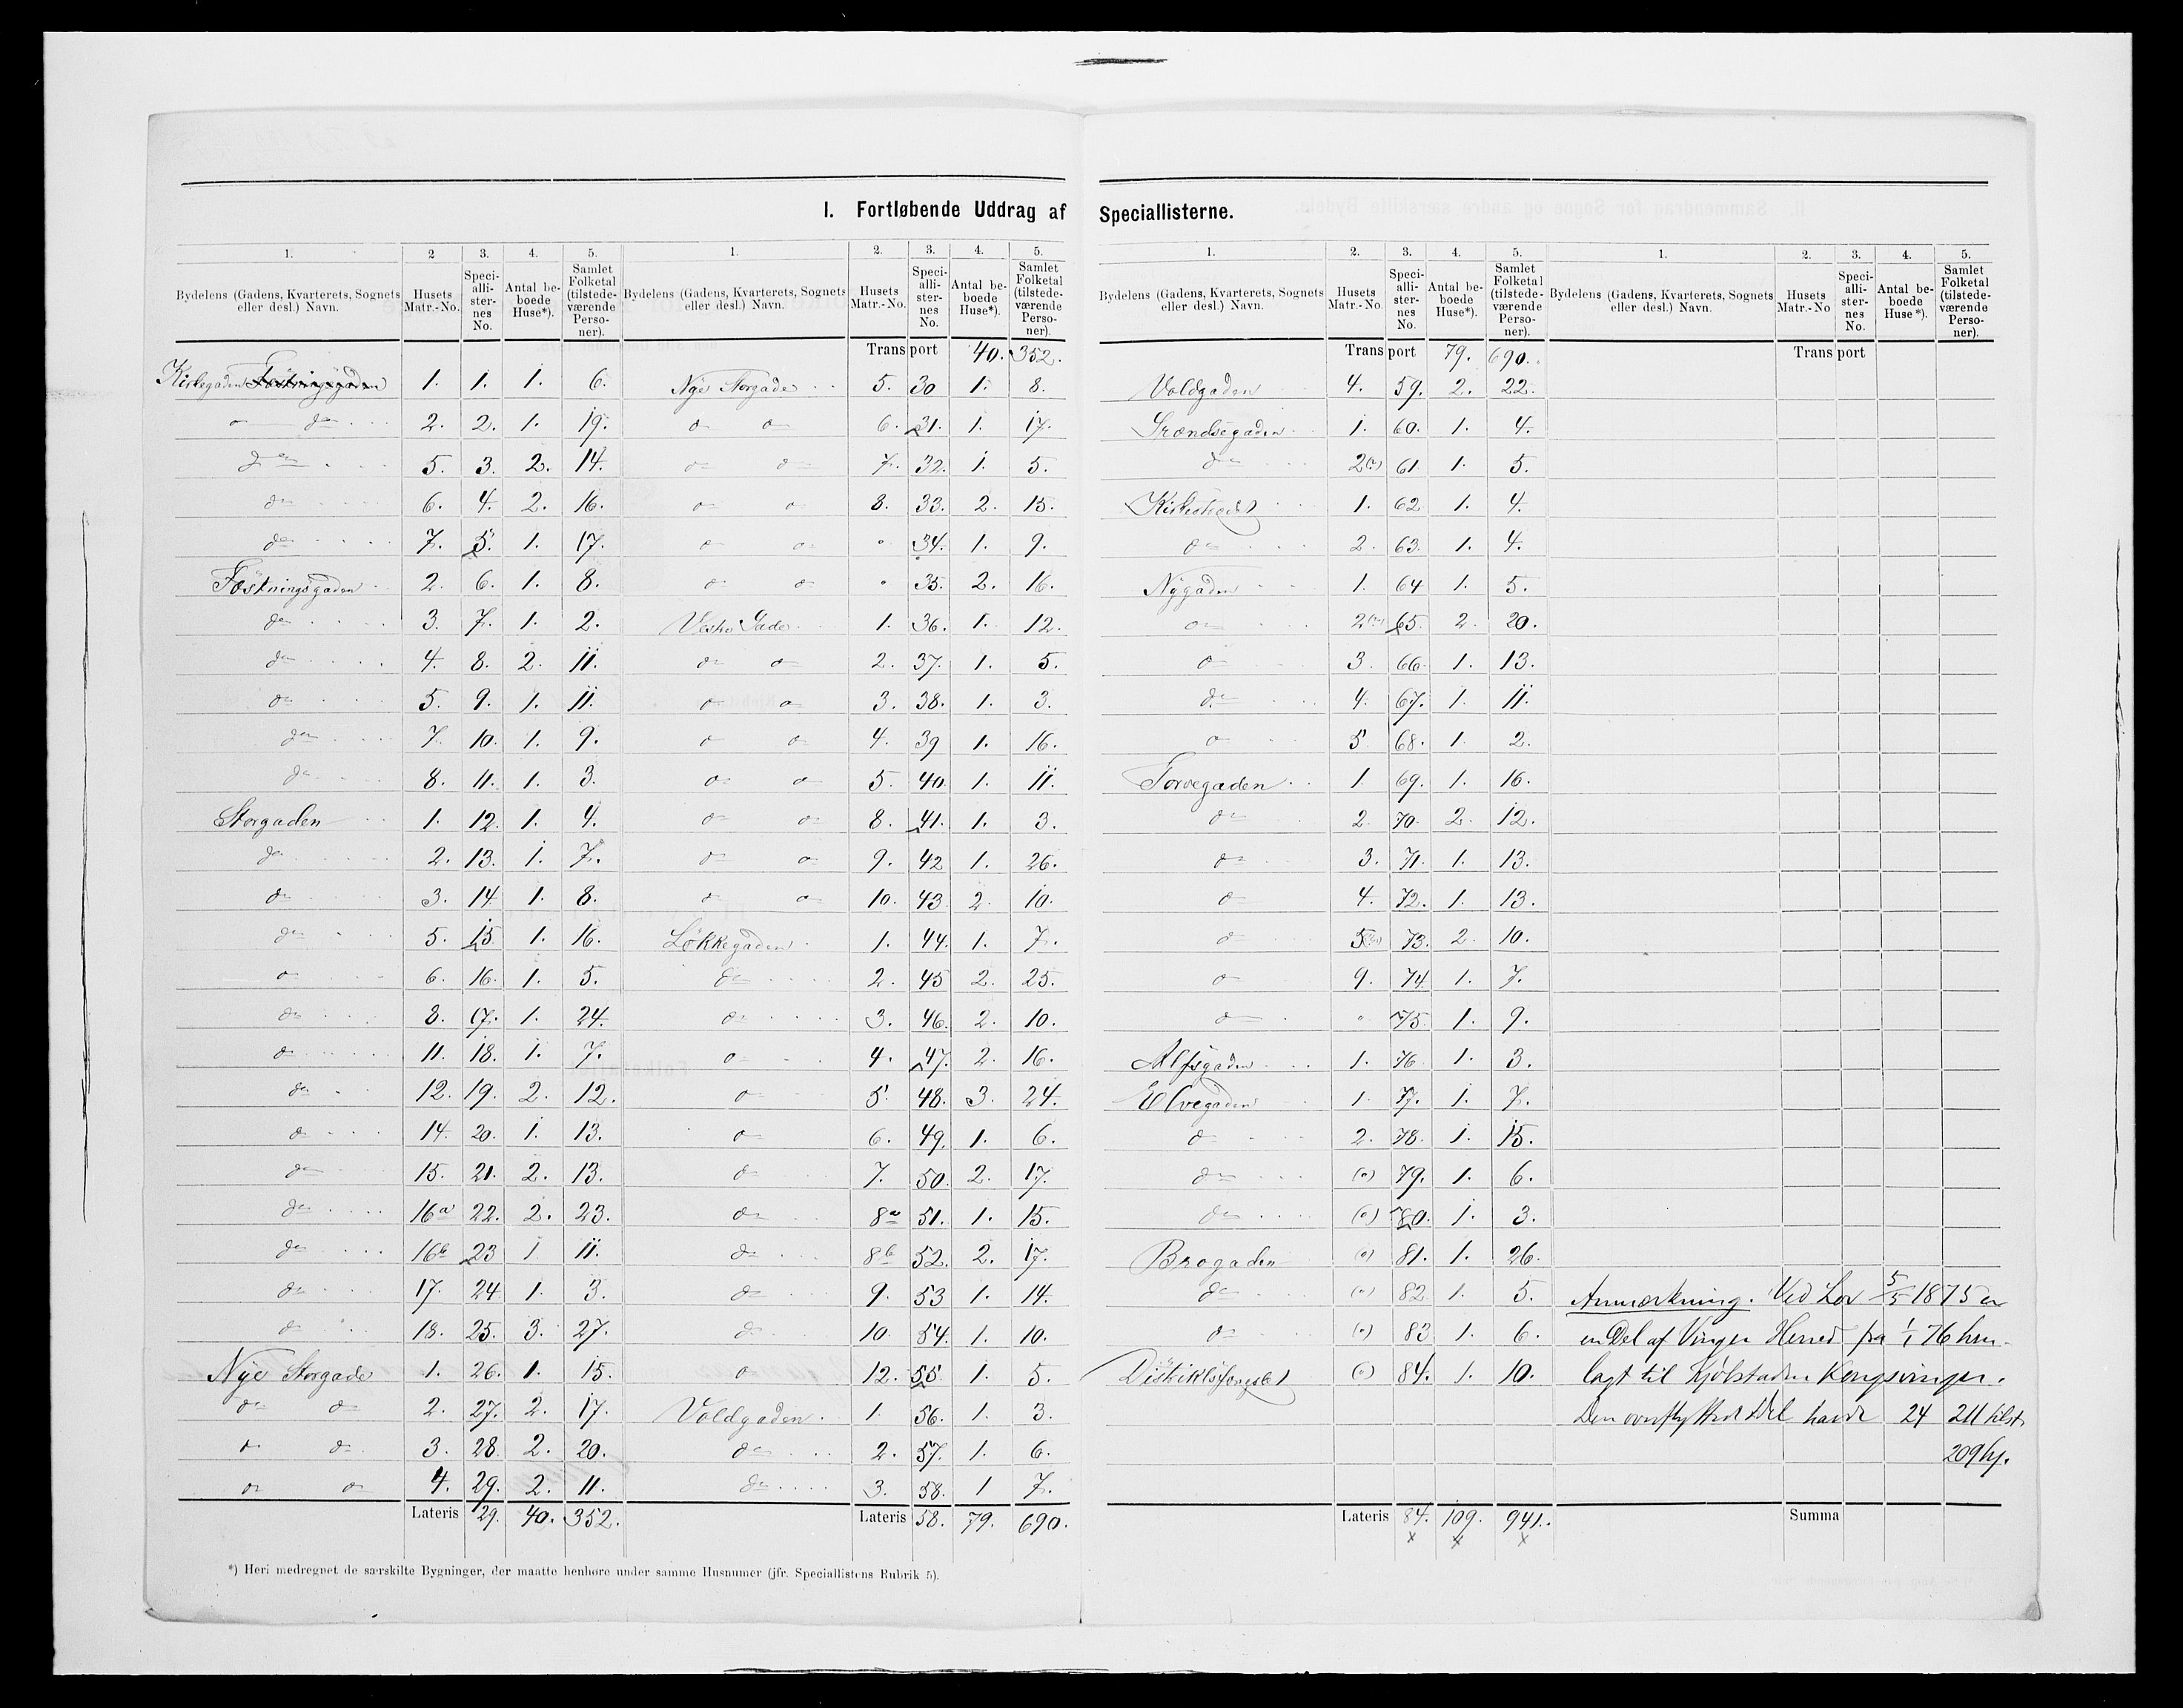 I. Fortløbende Uddrag af Speciallisterne.
1. 2 3. 4. 5.
Bydelens (Gadens, Kvarterets, Sognets eller desl.) Navn. Husets Matr.-No. Speci-alli-ster-nes No. Antal be-boede Huse*). Samlet Folketal (tilstede-værende Perso-ner).
Kirkegaden Fæstningsgaden 1. 1. 1. 6.
do 2. 2. 1. 19.
do 5. 3. 2. 14.
do 6. 4. 2. 16.
do 7. 5. 1. 17.
Fæstningsgaden 2. 6. 1. 8.
do 3. 7. 1. 2.
do 4. 8. 2. 11.
do 5. 9. 1. 11.
do 7. 10. 1. 9.
do 8. 11. 1. 3.
Storgaden 1. 12. 1. 4.
do 2. 13. 1. 7.
do 3. 14 1. 8.
do 5. 15 1. 16.
do 6. 16. 1. 5.
do 8. 17. 1. 24.
do 11. 18. 1. 7.
do 12. 19. 2. 12.
do 14. 20. 1. 13.
do 15. 21. 2. 13.
do 16a 22. 2. 23.
do 16b 23 1 11.
do 17. 24 1. 3.
do 18. 25. 3. 27.
Nye Storgade 1. 26. 1. 15.
do do 2. 27. 2. 17.
do do 3. 28. 2. 20.
do do 4. 29. 2. 11.
Lateris 29. 40. 352.
1. 2. 3. 4. 5.
Bydelens (Gadens, Kvarterets, Sognets eller desl.) Navn. Husets Matr.-No. Speci-alli-ster-nes No. Antal be-boede Huse*). Samlet Folketal (tilstede-værende Perso-ner).
Transport 40. 352.
Nye Storgade 5. 30 1. 8.
do do 6. 31. 1. 17.
do do 7. 32. 1. 5.
do do 8. 33. 2. 15.
do do " 34. 1. 9.
do do " 35. 2. 16.
Vestre Gade 1. 36. 1. 12.
do do 2. 37. 1. 5.
do do 3. 38. 1. 3.
do do 4. 39 1. 16.
do do 5. 40. 1. 11.
do do 8. 41. 1. 3.
do do 9. 42 1. 26.
do do 10. 43 2. 10.
Løkkegaden 1. 44. 1. 7.
do 2. 45 2. 25.
do 3. 46. 2. 10.
do 4. 47. 2. 16.
do 5. 48. 3. 24.
do 6. 49. 1. 6.
do 7. 50. 2. 17.
do 8a 51. 1. 15.
do 8b 52. 2. 17.
do 9. 53 1. 14.
do 10. 54. 1. 10.
do 12. 55. 1. 5.
Voldgaden 1. 56. 1. 3.
do 2. 57. 1. 6.
do 3. 58. 1 7.
Lateris 58. 79. 690.
*) Heri medregnet de særskilte Bygninger, der maatte henhøre under samme Husnumer (jfr. Speciallistens Rubrik 5).
1. 2. 3. 4. 5.
Bydelens (Gadens, Kvarterets, Sognets eller desl.) Navn. Husets Matr.-No. Speci-alli-ster-nes No. Antal be-boede Huse*). Samlet Folketal (tilstede-værende Perso-ner).
Transport 79. 690.
Voldgaden 4. 59. 2. 22.
Grændsegaden 1. 60. 1. 4.
do 2 61 1. 5.
1. 62 1. 4.
do 2. 63. 1. 4.
Nygaden 1. 64 1. 5.
do 2 65. 2. 20.
do 3. 66. 1. 13.
do 4. 67. 1. 11.
do 5 68. 1. 2.
Torvegaden 1 69. 1. 16.
do 2 70. 2. 12.
do 3. 71. 1. 13.
do 4. 72. 1. 13.
do 5 73. 2. 10.
do 9. 74. 1. 7.
do " 75. 1. 9.
Alfsgaden 1. 76. 1. 3.
Elvegaden 1. 77. 1. 7.
do 2. 78. 1. 15.
do (") 79. 1. 6.
do (") 80. 1. 3.
Brogaden (") 81. 1. 26.
do (") 82 1. 5.
do (") 83 1. 6.
Distriktsfængslet (") 84. 1. 10.
Lateris 84. 109. 941.
x x x
1. 2. 3. 4. 5.
Bydelens (Gadens, Kvarterets, Sognets eller desl.) Navn. Husets Matr.-No Speci-alli-ster-nes No. Antal be-boede Huse*). Samlet Folketal (tilstede-værende Perso-ner).
Transport
Anmærkning. Ved Lov 5/5 1875 er
en Del af Vinger Herred fra 1/1 76 hen-
lagt til Kjøbstaden Kongsvinger.
Den overflyttede Del havde 24 211 tilst.
209 hj.
Summa